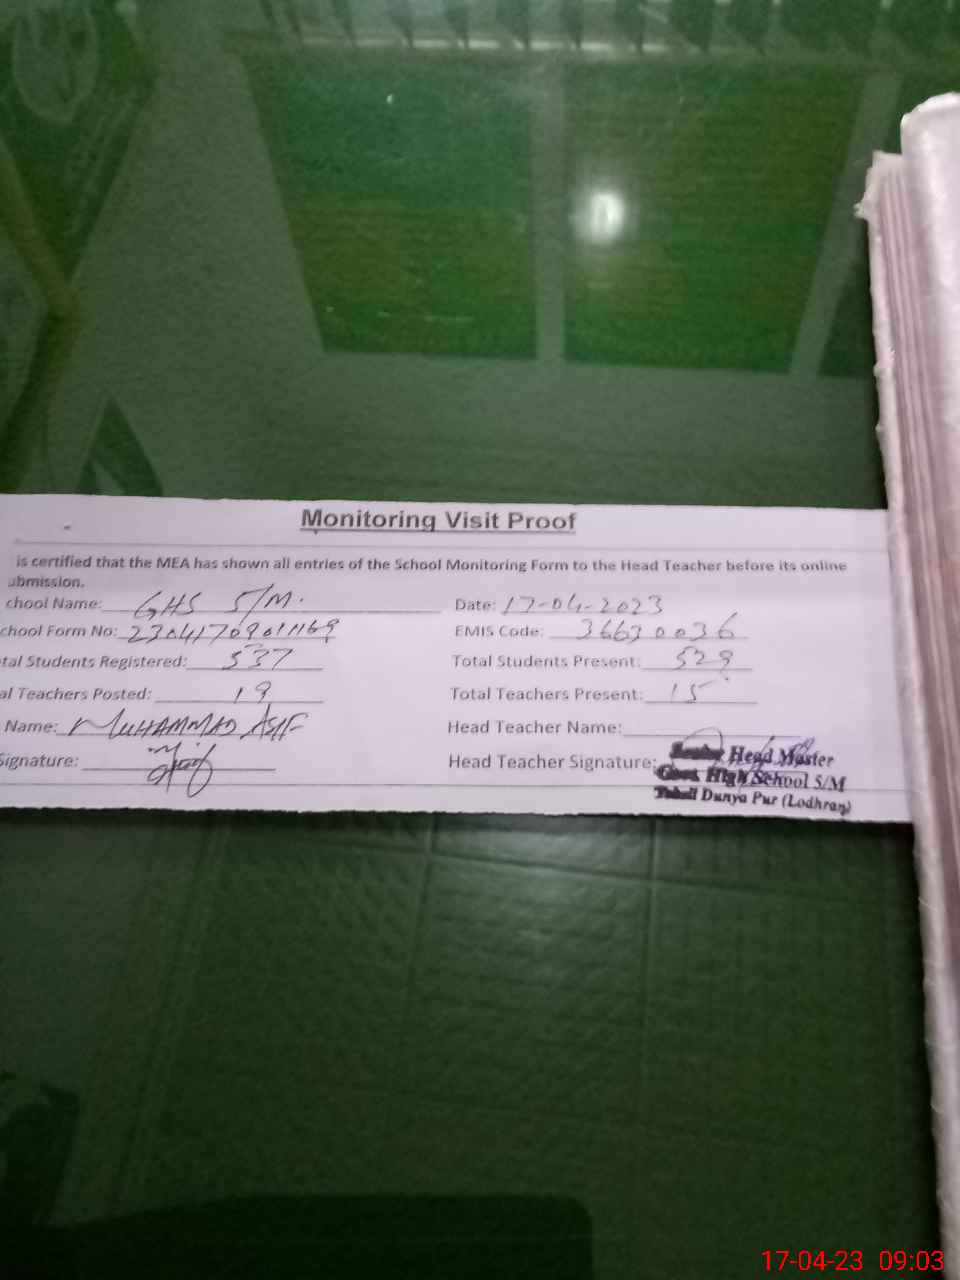 Monitoring Visit Proof
is certified that the MEA has shown all entries of the School Monitoring Form to the Head Teacher before its online
ubmission.
chool Name: GHS 5/M. Date: 17-04-2023
chool Form No: 23041709011169 EMIS Code: 36630036
tal Students Registered: 537 Total Students Present: 529
al Teachers Posted: 19 Total Teachers Present: 15
Name: MUHAMMAD ASIF Head Teacher Name:
Signature: Head Teacher Signature:
Senior Head Master
Govt. High School 5/M
Tehsil Dunya Pur (Lodhran)
17-04-23 09:03